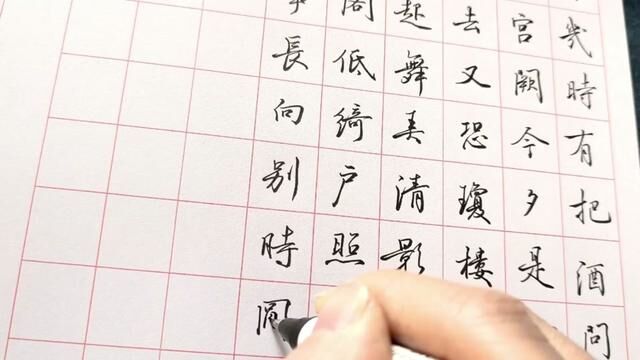 幾時有把酒問
宮闕今夕是
去又恐瓊樓
起舞弄清影
閣低綺戶照
事長向別時圓